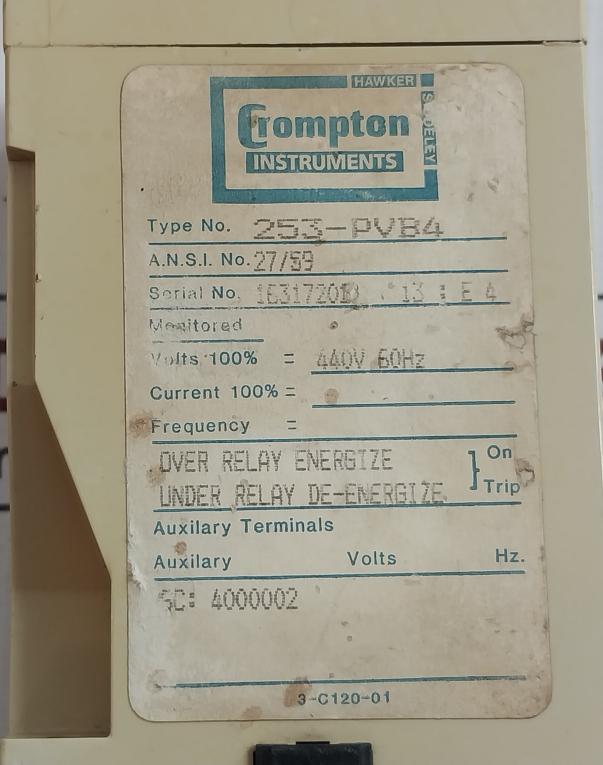 HAWKER
SIDDELEY
Crompton
INSTRUMENTS
Type No. 253-PVB4
A.N.S.I. No. 27/59
Serial No. 13:E4
Monitored
Volts 100% = 440V 60Hz
Current 100% =
Frequency =
OVER RELAY ENERGIZE } On
UNDER RELAY DE-ENERGIZE Trip
Auxilary Terminals
Auxilary Volts Hz.
SC: 4000002
3-C120-01